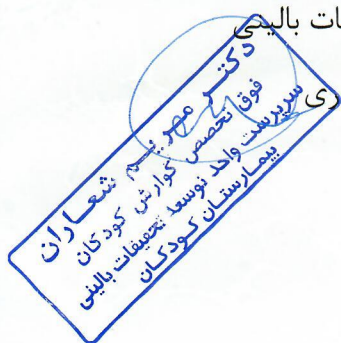 ات بالینی
ری
دکتر مریم شعاران
فوق تخصص گوارش کودکان
سرپرست واحد توسعه تحقیقات بالینی
بیمارستان کودکان